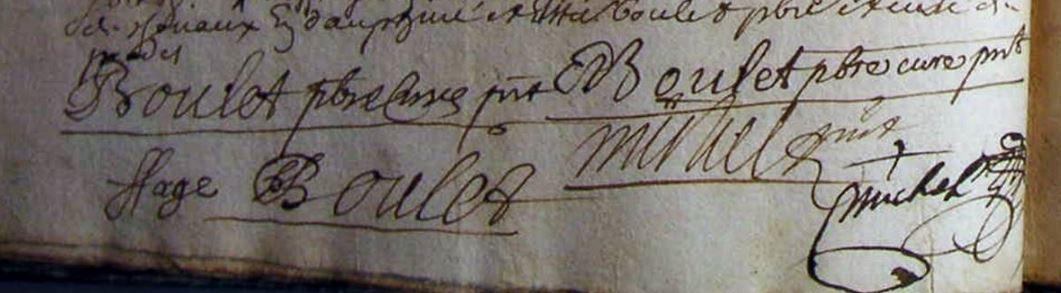 en dauphiné et Mre boulet pbre et curé de
Boulet pbre Cure pnt Boulet pbre cure pnt
michel pnt
Hage Boulet
michel